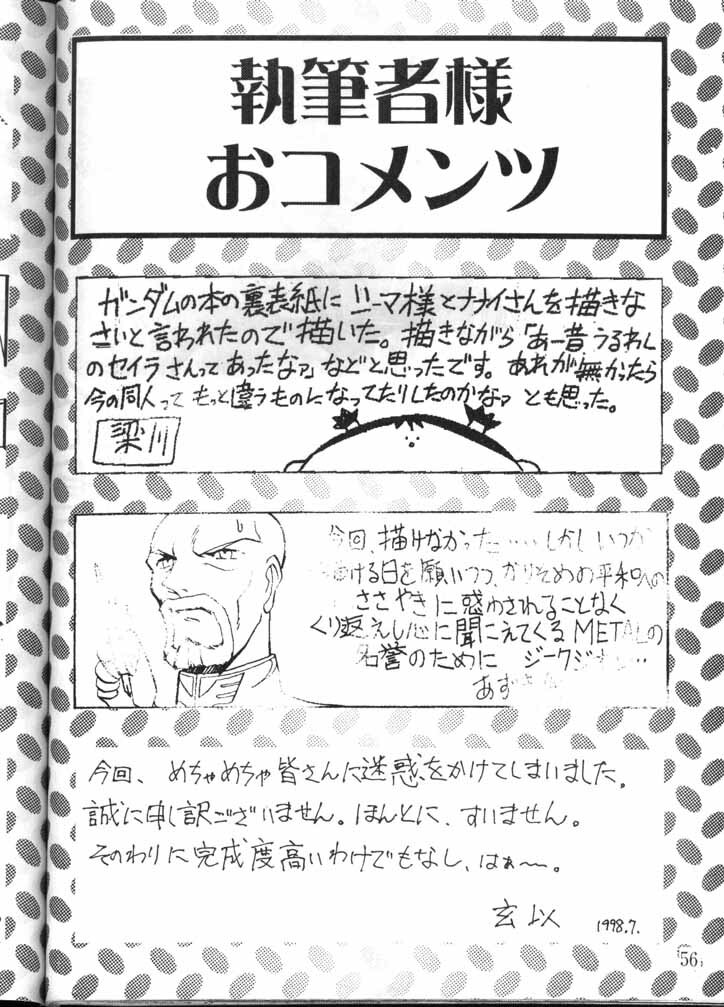 執筆者様
おコメンツ
ガンダムの本の裏表紙にシーマ様とナナイさんを描きな
さいと言われたので描いた。描きながら「あー昔うるわし
のセイラさんってあったなァ」などと思ったです。あれが無かったら
今の同人って もっと違うものになってたりしたのかなァ とも思った。
梁川
今回、描けなかった……しかし いつか
ける日を願いつつ、かりそめの平和への
ささやきに惑わされることなく
くり返えし心に聞こえてくるMETALの
名誉のために ジークジオン…
あず
今回、めちゃめちゃ皆さんに迷惑をかけてしまいました。
誠に申し訳ございません。ほんとに、すいません。
そのわりに完成度高いわけでもなし、はぁ〜。
玄以 1998.7.
56